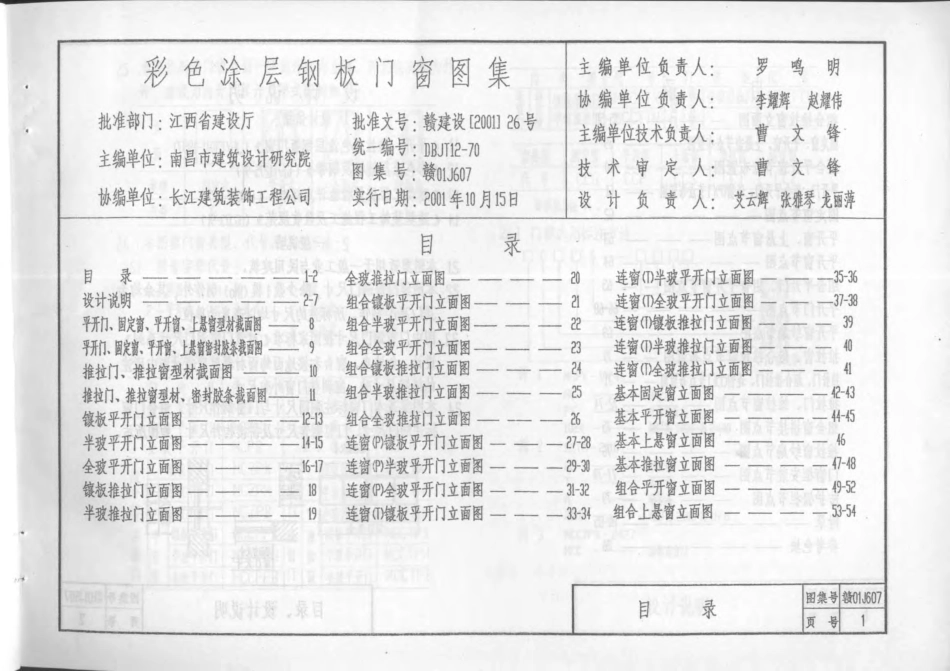 彩色涂层钢板门窗图集
批准部门：江西省建设厅
主编单位：南昌市建筑设计研究院
协编单位：长江建筑装饰工程公司
批准文号：赣建设[2001]26号
统一编号：DBJT12-70
图集号：赣01J607
实行日期：2001年10月15日
主编单位负责人：罗鸣明
协编单位负责人：李耀辉 赵耀伟
主编单位技术负责人：曹文锋
技术审定人：曹文锋
设计负责人：艾云辉 张雅琴 龙丽萍
目 录
目 录 1-2
设计说明 2-7
平开门、固定窗、平开窗、上悬窗型材截面图 8
平开门、固定窗、平开窗、上悬窗密封胶条截面图 9
推拉门、推拉窗型材截面图 10
推拉门、推拉窗型材、密封胶条截面图 11
镶板平开门立面图 12-13
半玻平开门立面图 14-15
全玻平开门立面图 16-17
镶板推拉门立面图 18
半玻推拉门立面图 19
全玻推拉门立面图 20
组合镶板平开门立面图 21
组合半玻平开门立面图 22
组合全玻平开门立面图 23
组合镶板推拉门立面图 24
组合半玻推拉门立面图 25
组合全玻推拉门立面图 26
连窗(P)镶板平开门立面图 27-28
连窗(P)半玻平开门立面图 29-30
连窗(P)全玻平开门立面图 31-32
连窗(T)镶板平开门立面图 33-34
连窗(T)半玻平开门立面图 35-36
连窗(T)全玻平开门立面图 37-38
连窗(T)镶板推拉门立面图 39
连窗(T)半玻推拉门立面图 40
连窗(T)全玻推拉门立面图 41
基本固定窗立面图 42-43
基本平开窗立面图 44-45
基本上悬窗立面图 46
基本推拉窗立面图 47-48
组合平开窗立面图 49-52
组合上悬窗立面图 53-54
目 录
图集号 赣01J607
页 号 1